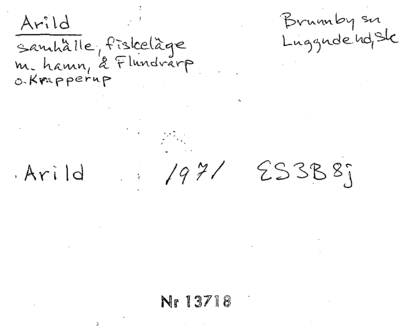 Arild
samhälle, fiskeläge
m. hamn, å Flundrarp
o. Krapperup
Brunnby sn
Luggude hd, Sk
Arild 1971 ES3B8j
Nr 13718